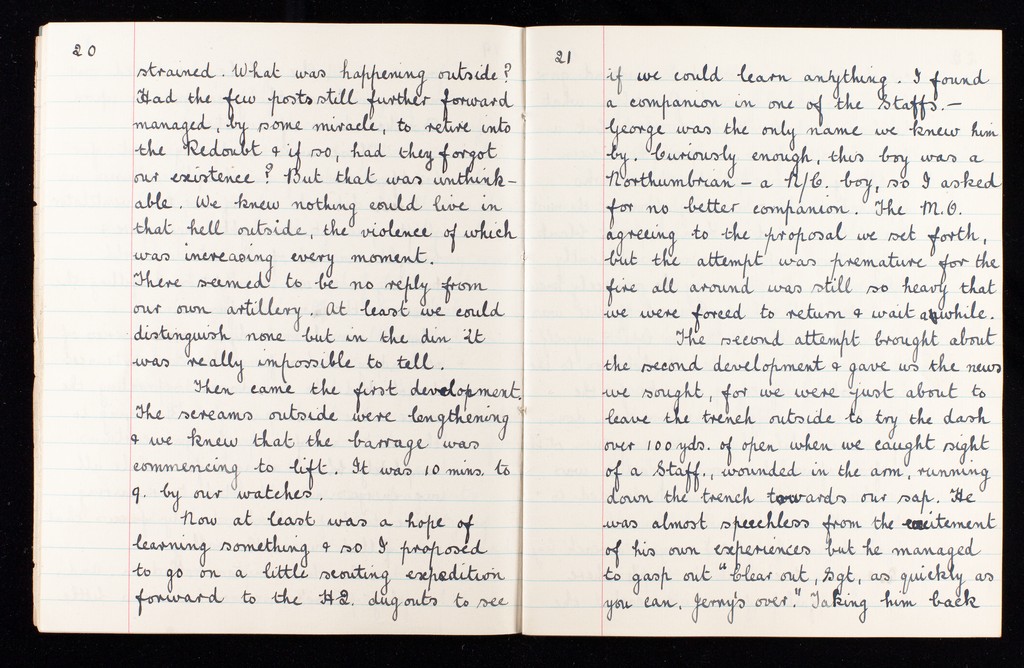 20
strained. What was happening outside?
Had the few posts still further forward
managed, by some miracle, to retire into
the Redoubt & if so, had they forgot
our existence? But that was unthink-
able. We knew nothing could live in
that hell outside, the violence of which
was increasing every moment.
There seemed to be no reply from
our own artillery. At least we could
distinguish none but in the din it
was really impossible to tell.
Then came the first development.
The screams outside were lengthening
& we knew that the barrage was
commencing to lift. It was 10 mins. to
9. by our watches.
Now at least was a hope of
learning something & so I proposed
to go on a little scouting expedition
forward to the HQ. dugouts to see
21
if we could learn anything. I found
a companion in one of the Staffs. —
George was the only name we knew him
by. Curiously enough, this boy was a
Northumbrian — a N/C. boy, so I asked
for no better companion. The M.O.
agreeing to the proposal we set forth,
but the attempt was premature for the
fire all around was still so heavy that
we were forced to return & wait awhile.
The second attempt brought about
the second development & gave us the news
we sought, for we were just about to
leave the trench outside to try the dash
over 100 yds. of open when we caught sight
of a Staff., wounded in the arm, running
down the trench towards our sap. He
was almost speechless from the excitement
of his own experiences but he managed
to gasp out "Clear out, Sgt, as quickly as
you can. Jerry's over." Taking him back